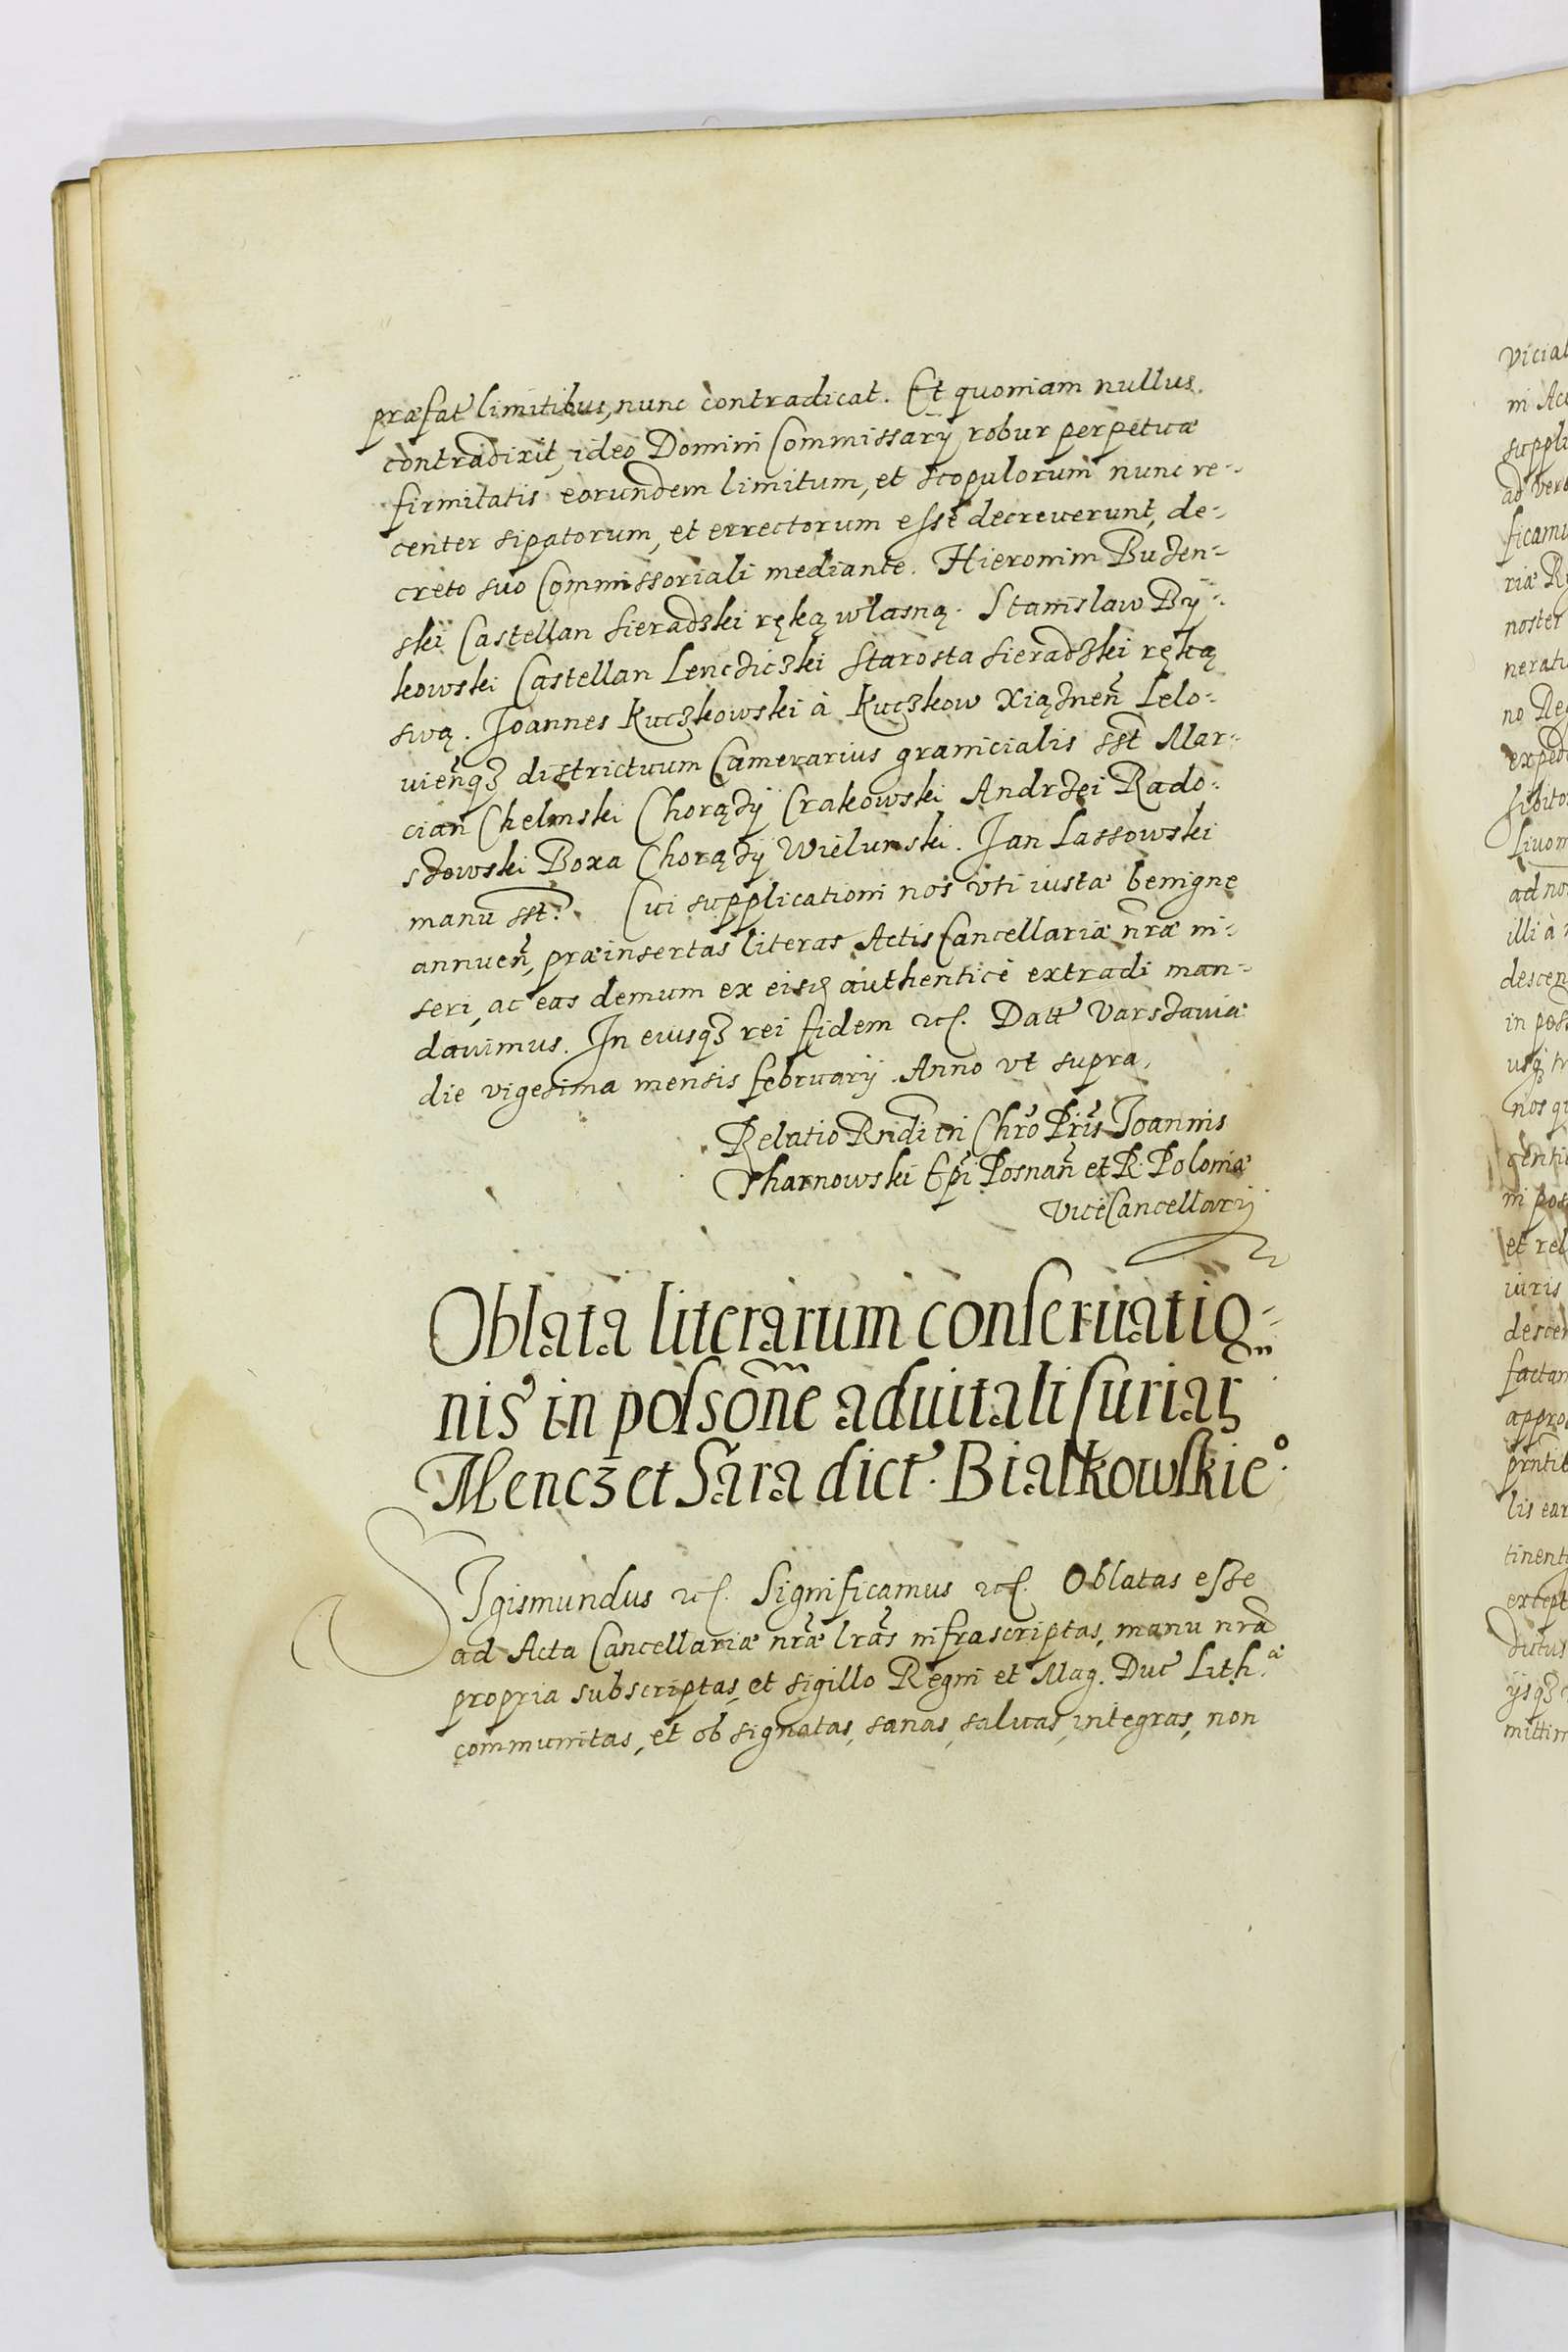 præfat limitibus, nunc contradicat. Et quoniam nullus
contradixit, ideo Domini Commissarij robur perpetuæ
firmitatis eorundem limitum, et scopulorum nunc re-
center sipatorum, et errectorum esse decreuerunt, de-
creto suo Commissoriali mediante. Hieronim Buzen-
ski Castellan Sieradzki ręką własną. Stanislaw By-
kowski Castellan Lencziczki Starosta Sieradzki ręką
swą. Joannes Kuczkowski à Kuczkow Xiąznen̄ Lelo-
uien̄qȝ districtuum Camerarius granicialis sst Mar-
cian Chelmski Chorązÿ Crakowski Andrzei Rado-
szowski Boxa Chorązÿ Wielunski. Jan Lassowski
manu sst. Cui supplicationi nos vti iustæ benigne
annuen̄, præinsertas literas Actis Cancellariæ nr̄æ in-
seri, ac eas demum ex eisqȝ authenticè extradi man-
dauimus. In euiusqȝ rei fidem etc. Datt Varszauiæ
die vigesima mensis februarij. Anno vt supra.
Relatio Rndi in Chr̄o Pr̄is Joannis
Tharnowski Ep̄i Posnan̄ et R. Poloniæ
ViceCancellarij
Oblata literarum conseruatio-
nis in possōne aduitali suriaȝ
Mencz et Sara dict. Białkowskie.°
Sigismundus etc. Significamus etc. Oblatas esse
ad Acta Cancellariæ nr̄æ lr̄as infrascriptas, manu nr̄a
propria subscriptas, et sigillo Regni et Mag. Duc Lith.ᵃ
communitas, et obsignatas, sanas, saluas, integras, non